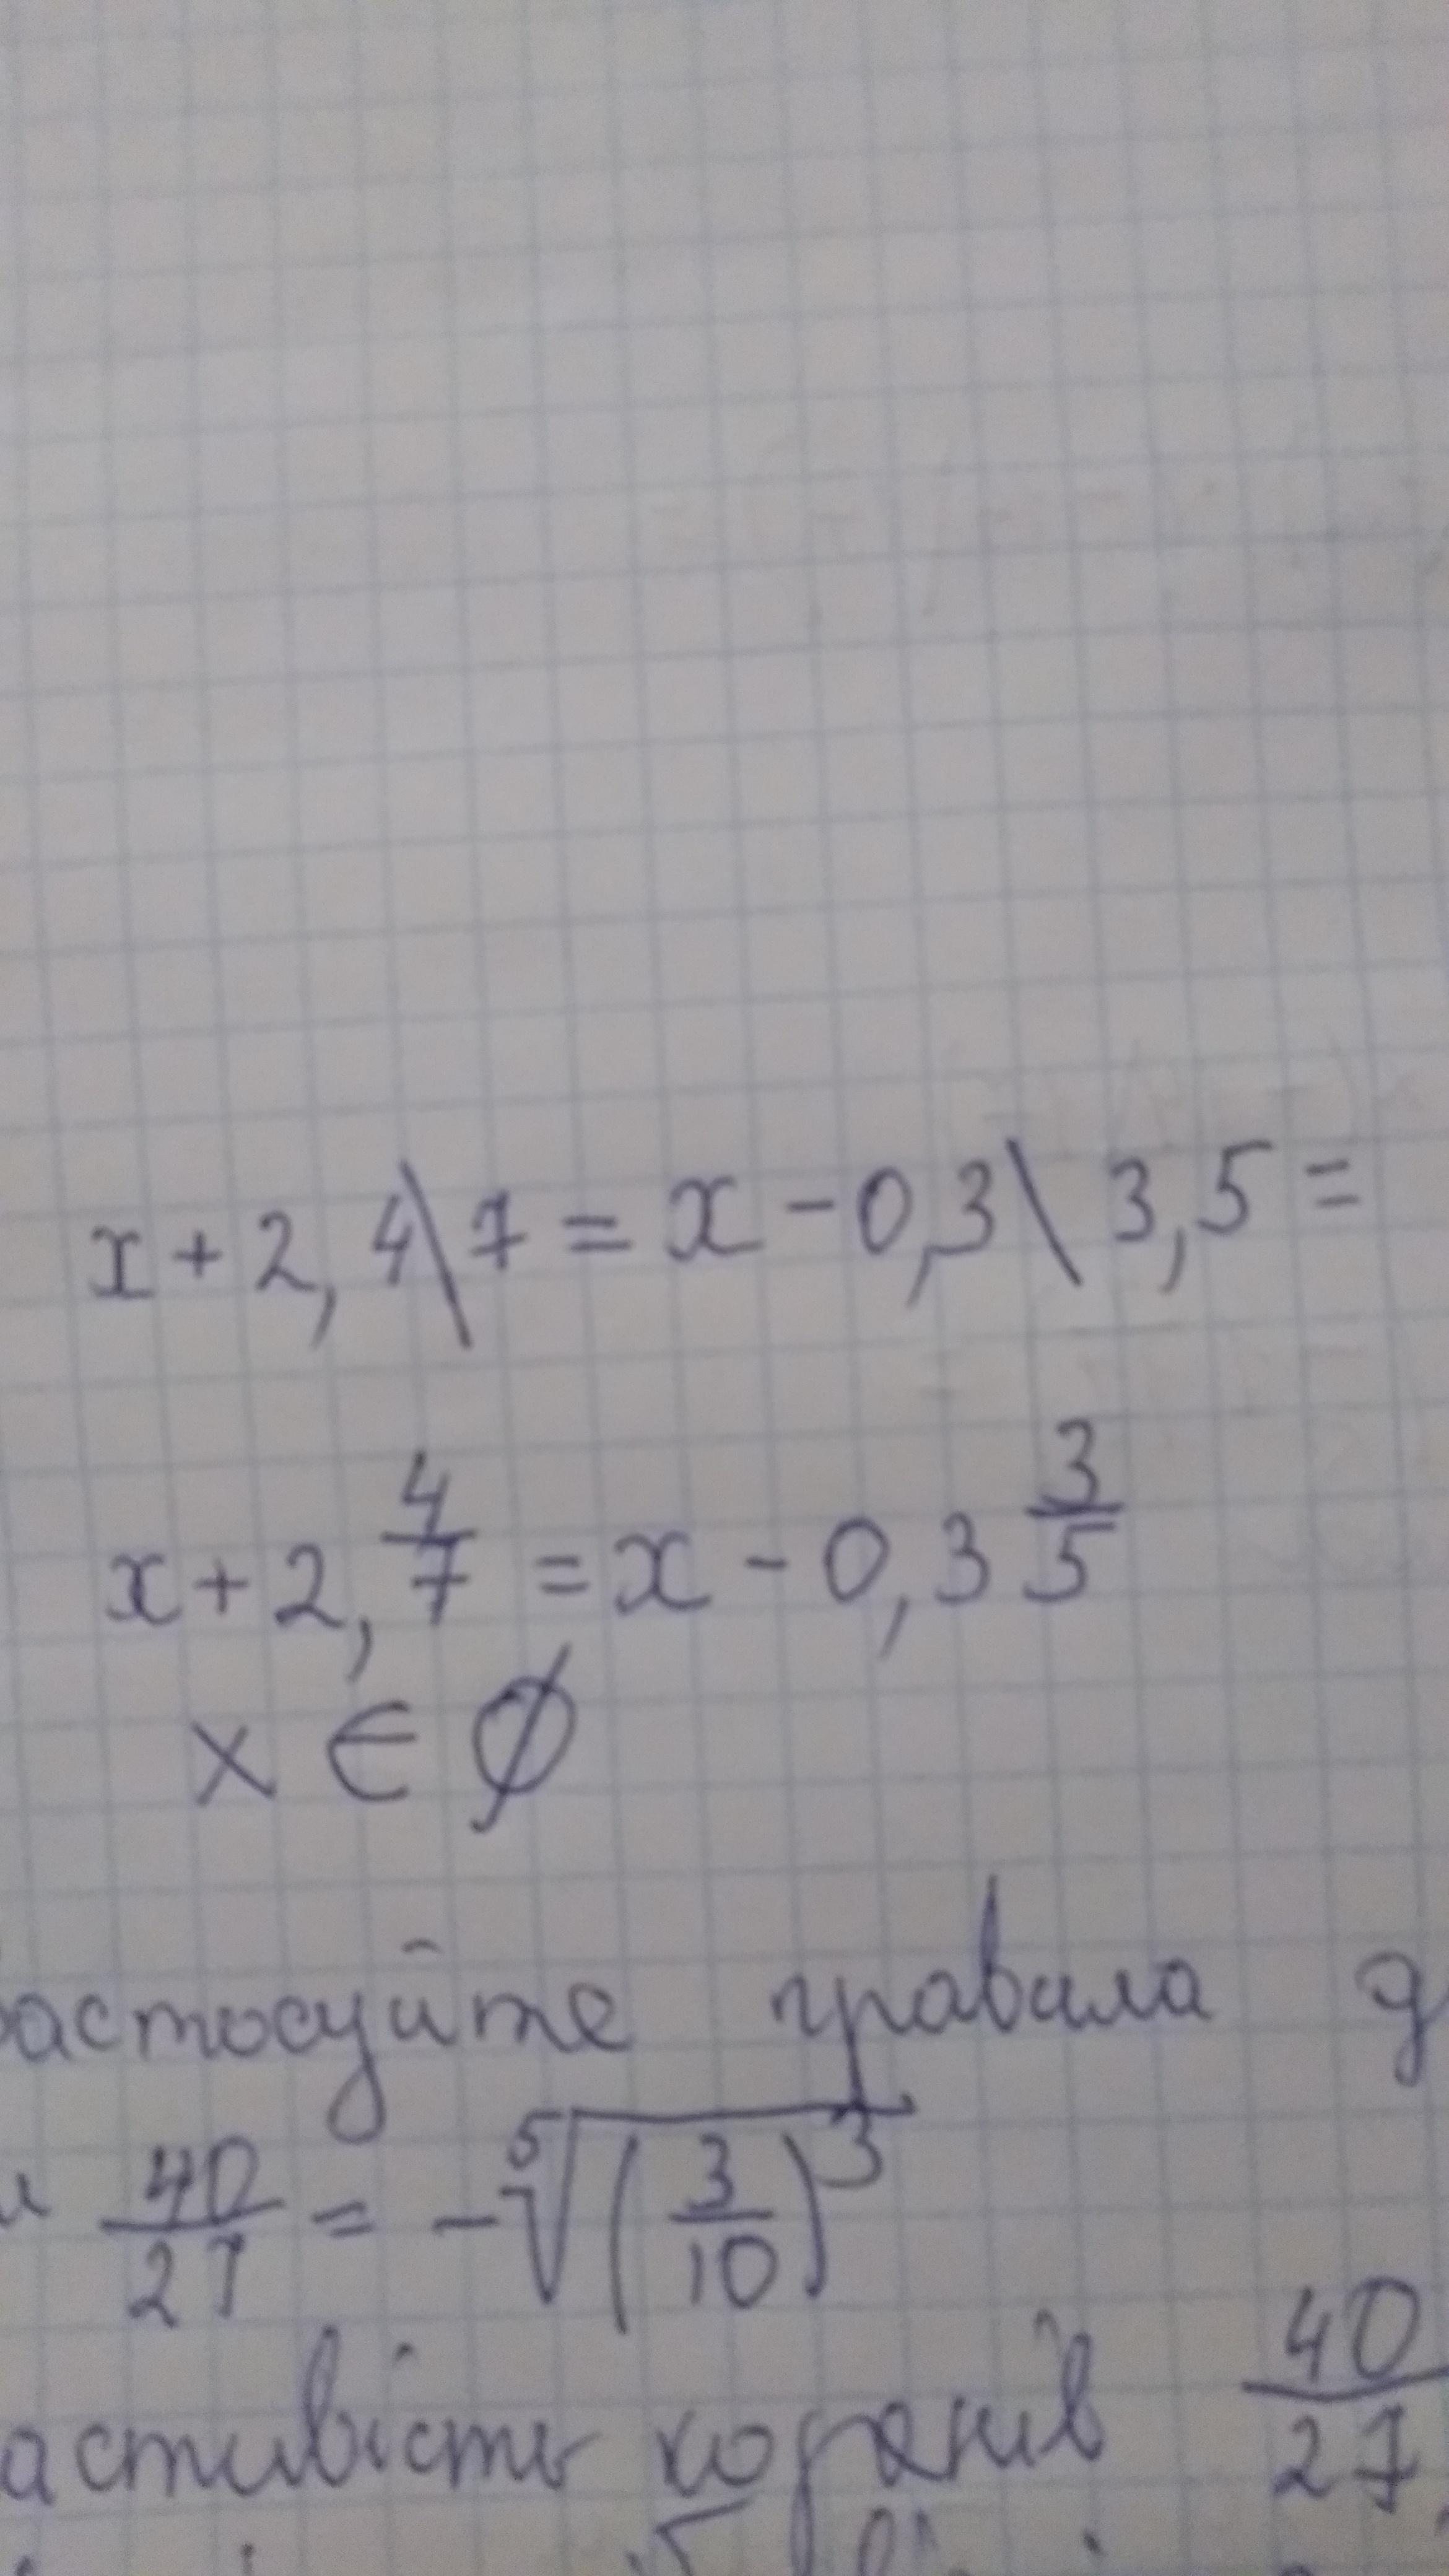 x + 2,4\7 = x - 0,3\3,5 =
x + 2, 4/7 = x - 0,3 3/5
x ∈ ∅
астосуйте правила д
40/27 = - ⁵√(3/10)³
астивість коренів 40/27